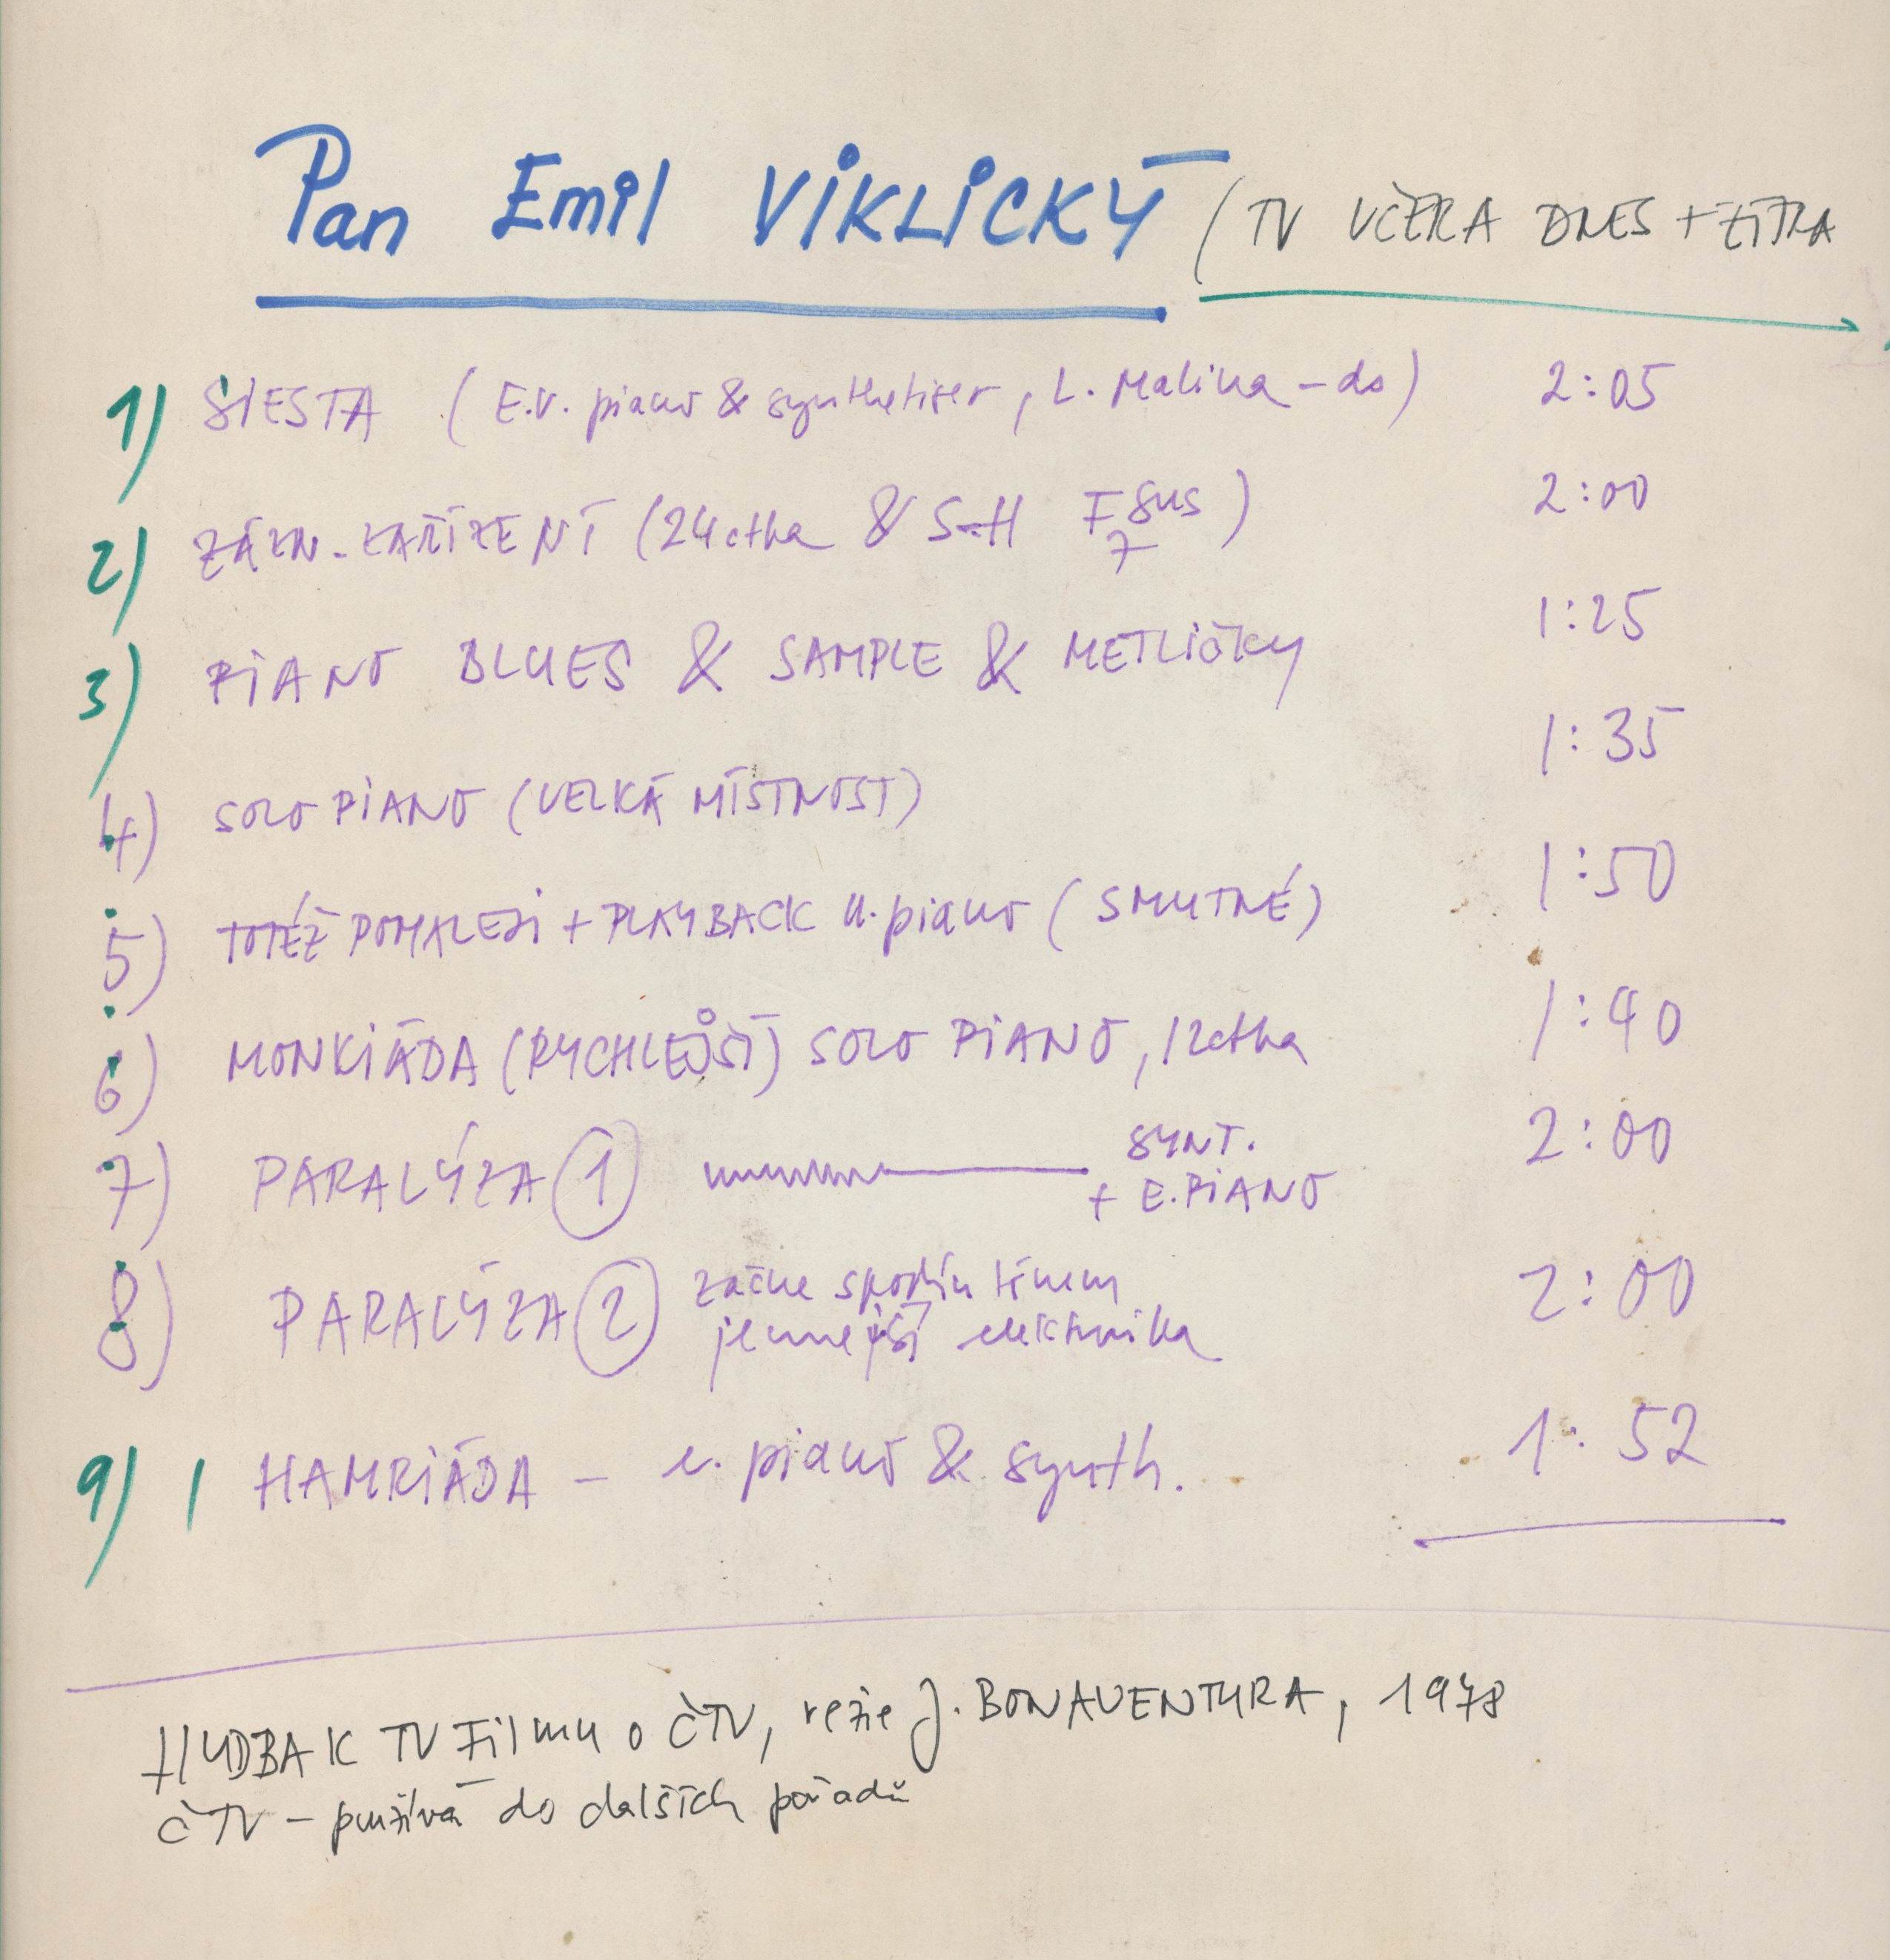 Pan Emil VIKLICKÝ (TV VČERA DNES + ZÍTRA
1) SIESTA (E.V. piano & synthetiser, L. Malina – ds) 2:05
2) ZÁZN. ZAŘÍZENÍ (24ctka & S-H F7sus) 2:00
3) PIANO BLUES & SAMPLE & METLIČKY 1:25
4) SOLO PIANO (VELKÁ MÍSTNOST) 1:35
5) TOTÉŽ POMALEJI + PLAYBACK piano (SMUTNÉ) 1:50
6) MONKIÁDA (RYCHLEJŠÍ) SOLO PIANO, 12ctka 1:40
7) PARALÝZA 1 SYNT. + E. PIANO 2:00
8) PARALÝZA 2 začne 2:00
jemnější elektronika
9) HAMRIÁDA – e. piano & synth. 1:52
HUDBA K TV Filmu o ČTV, režie J. BONAVENTURA, 1978
ČTV – používá do dalších pořadů